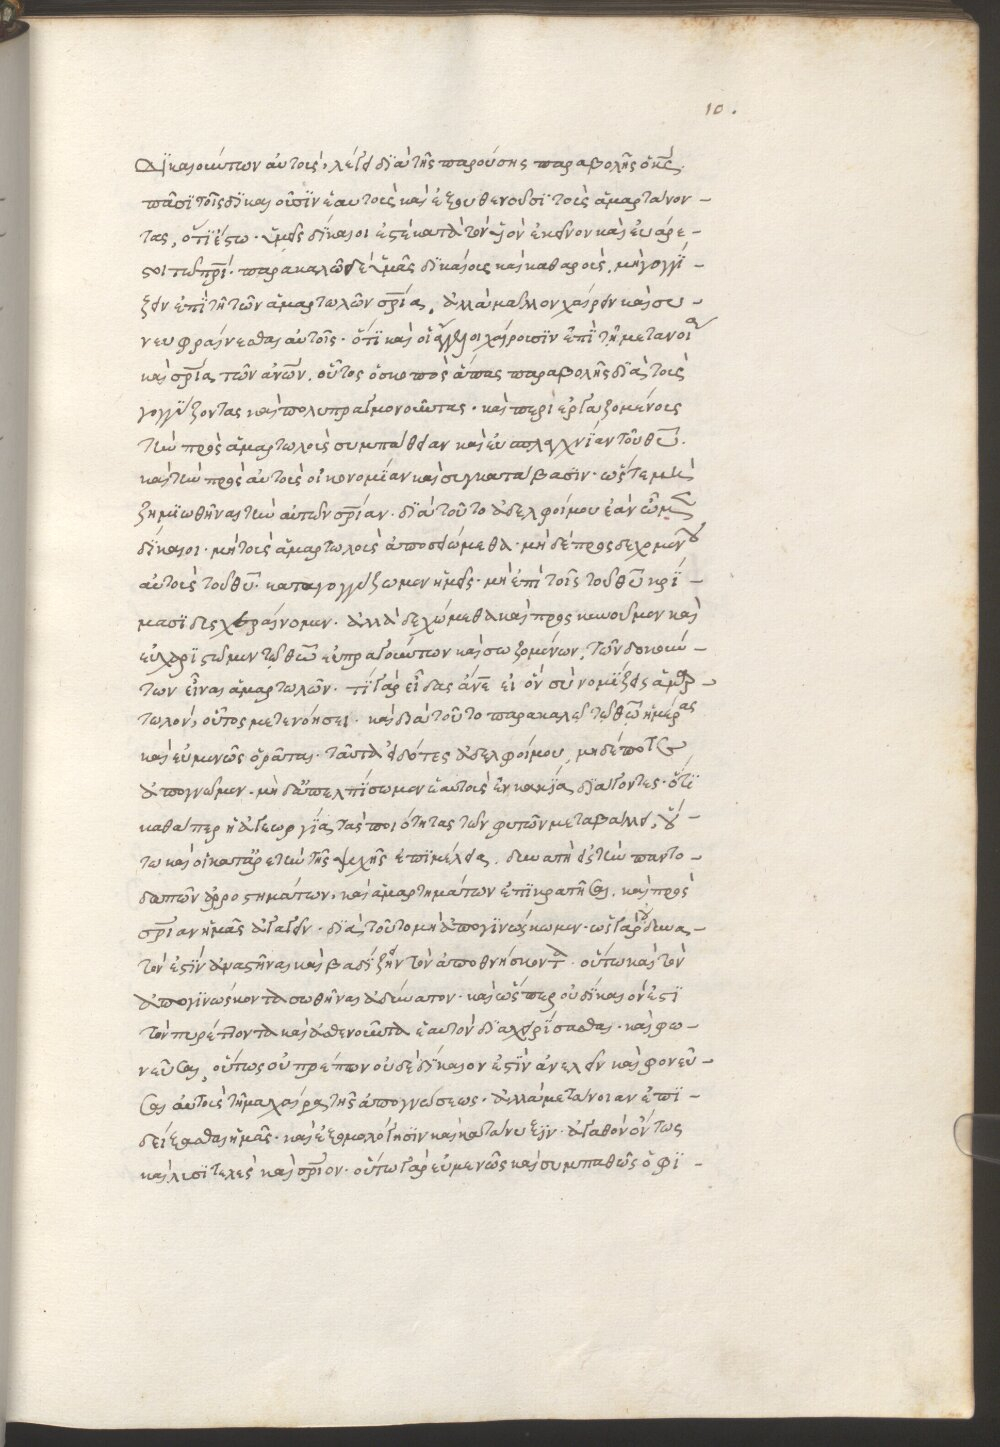 10.
δϊκαιούντων αὐτοὺς, λέγει διὰ τῆς παρούσης παραβολῆς ὁ κ̅ς̅.
πᾶσι τοῖς δϊκαιοῦσϊν ἑαυτοὺς καὶ ἐξουθενοῦσϊ τοὺς ἁμαρτάνον -
τας, ὅτϊ ἔστω. ὑμεῖς δίκαιοι ἐστὲ κατὰ τὸν υἱὸν ἐκεῖνον καὶ εὐάρε -
στοι τῷ π̅ρ̅ί̅. παρακαλῶ δὲ ὑμᾶς δϊκαίους καὶ καθαροὺς, μὴ γογγϊ -
ζειν ἐπὶ τῆ τῶν ἁμαρτωλῶν σ̅ρ̅ία, ἀλλὰ μᾶλλον χαίρειν καὶ συ -
νευφραίνεσθαι αὐτοῖς. ὅτϊ καὶ οἱ ἄγγελοι χαίρουσϊν ἐπὶ τῆ μετανοία
καὶ σ̅ρ̅ία τῶν α̅ν̅ω̅ν̅. οὗτος ὁ σκοπὸς ἁπάσης παραβολῆς διὰ τοὺς
γογγύζοντας καὶ πολυπραγμονοῦντας. καὶ περιεργαζομένους
τὴν πρὸς ἁμαρτωλοὺς συμπάθειαν καὶ εὐσπλαγχνίαν τοῦ θ̅υ̅.
καὶ τὴν πρὸς αὐτοὺς οἰκονομίαν καὶ συγκατάβασϊν. ὥστε μὴ
ζημϊωθῆναι τὴν αὐτῶν σ̅ρ̅ίαν. διὰ τοῦτο ἀδελφοί μου ἐὰν ὦμεν
δίκαιοι. μὴ τοὺς ἁμαρτωλοὺς ἀποστώμεθα. μὴ δὲ προσδεχομένου
αὐτοὺς τοῦ θ̅υ̅. καταγογγύζωμεν ἡμεῖς. μὴ ἐπὶ τοῖς τοῦ θ̅υ̅ κρί -
μασϊ δυσχεραίνομεν. ἀλλὰ δεχώμεθα καὶ προσκυνοῦμεν καὶ
εὐχαριστῶμεν τῷ θ̅ω̅ εὐπραγούντων καὶ σωζομένων, τῶν δοκούν -
των εἶναι ἁμαρτωλῶν. τί γὰρ εἶδας ἄ̅ν̅ε̅ εἰ ὃν σὺ νομίζεις ἁμαρ -
τωλὸν, οὗτος μετενόησεν. καὶ διὰ τοῦτο παρακαλεῖ τῷ θ̅ω̅ ἡμέρας
καὶ εὐμενῶς ὁρᾶται. ταῦτα εἰδότες ἀδελφοί μου, μηδέποτε
ἀπογνῶμεν. μὴ δ' ἀπελπίσωμεν ἑαυτοὺς ἐν κακία διάγοντες. ὅτϊ
καθάπερ ἡ γεωργία τὰς ποιότητας τῶν φυτῶν μεταβάλλει, οὕ -
τω καὶ οἱ κατ' ἀρετὴν τῆς ψυχῆς ἐπιμέλεια, παντο -
δαπῶν ἀρρωστημάτων, καὶ ἁμαρτημάτων ἐπϊκρατῆσαι, καὶ πρὸς
σ̅ρ̅ίαν ἡμᾶς ἀγαγεῖν. διὰ τοῦτο μὴ ἀπογϊνώσκωμεν. ὡς γὰρ οὐ δυνα -
τόν ἐστϊν ἀναστῆναι καὶ βαδίζειν τὸν ἀποθνήσκοντα. οὕτω καὶ τὸν
ἀπογϊνώσκοντα σωθῆναι ἀδύνατον. καὶ ὥσπερ οὐ δίκαιόν ἐστϊ
τὸν πυρέττοντα καὶ ἀσθενοῦντα ἑαυτὸν διαχειρίσασθαι. καὶ φο -
νεῦσαι, οὕτως οὐ πρέπον οὐδὲ δίκαιον ἐστϊν ἀνελεῖν καὶ φονεῦ -
σαι αὐτοὺς τῆ μαχαίρα τῆς ἀπογνώσεως. ἀλλὰ μετάνοιαν ἐπι -
δείξασθαι ἡμᾶς. καὶ ἐξομολόγησϊν καὶ κατάνυξϊν. ἀγαθὸν ὄντως
καὶ λυσϊτελὲς καὶ σ̅ρ̅ιον. οὕτω γὰρ εὐμενῶς καὶ συμπαθῶς ὁ φϊ -